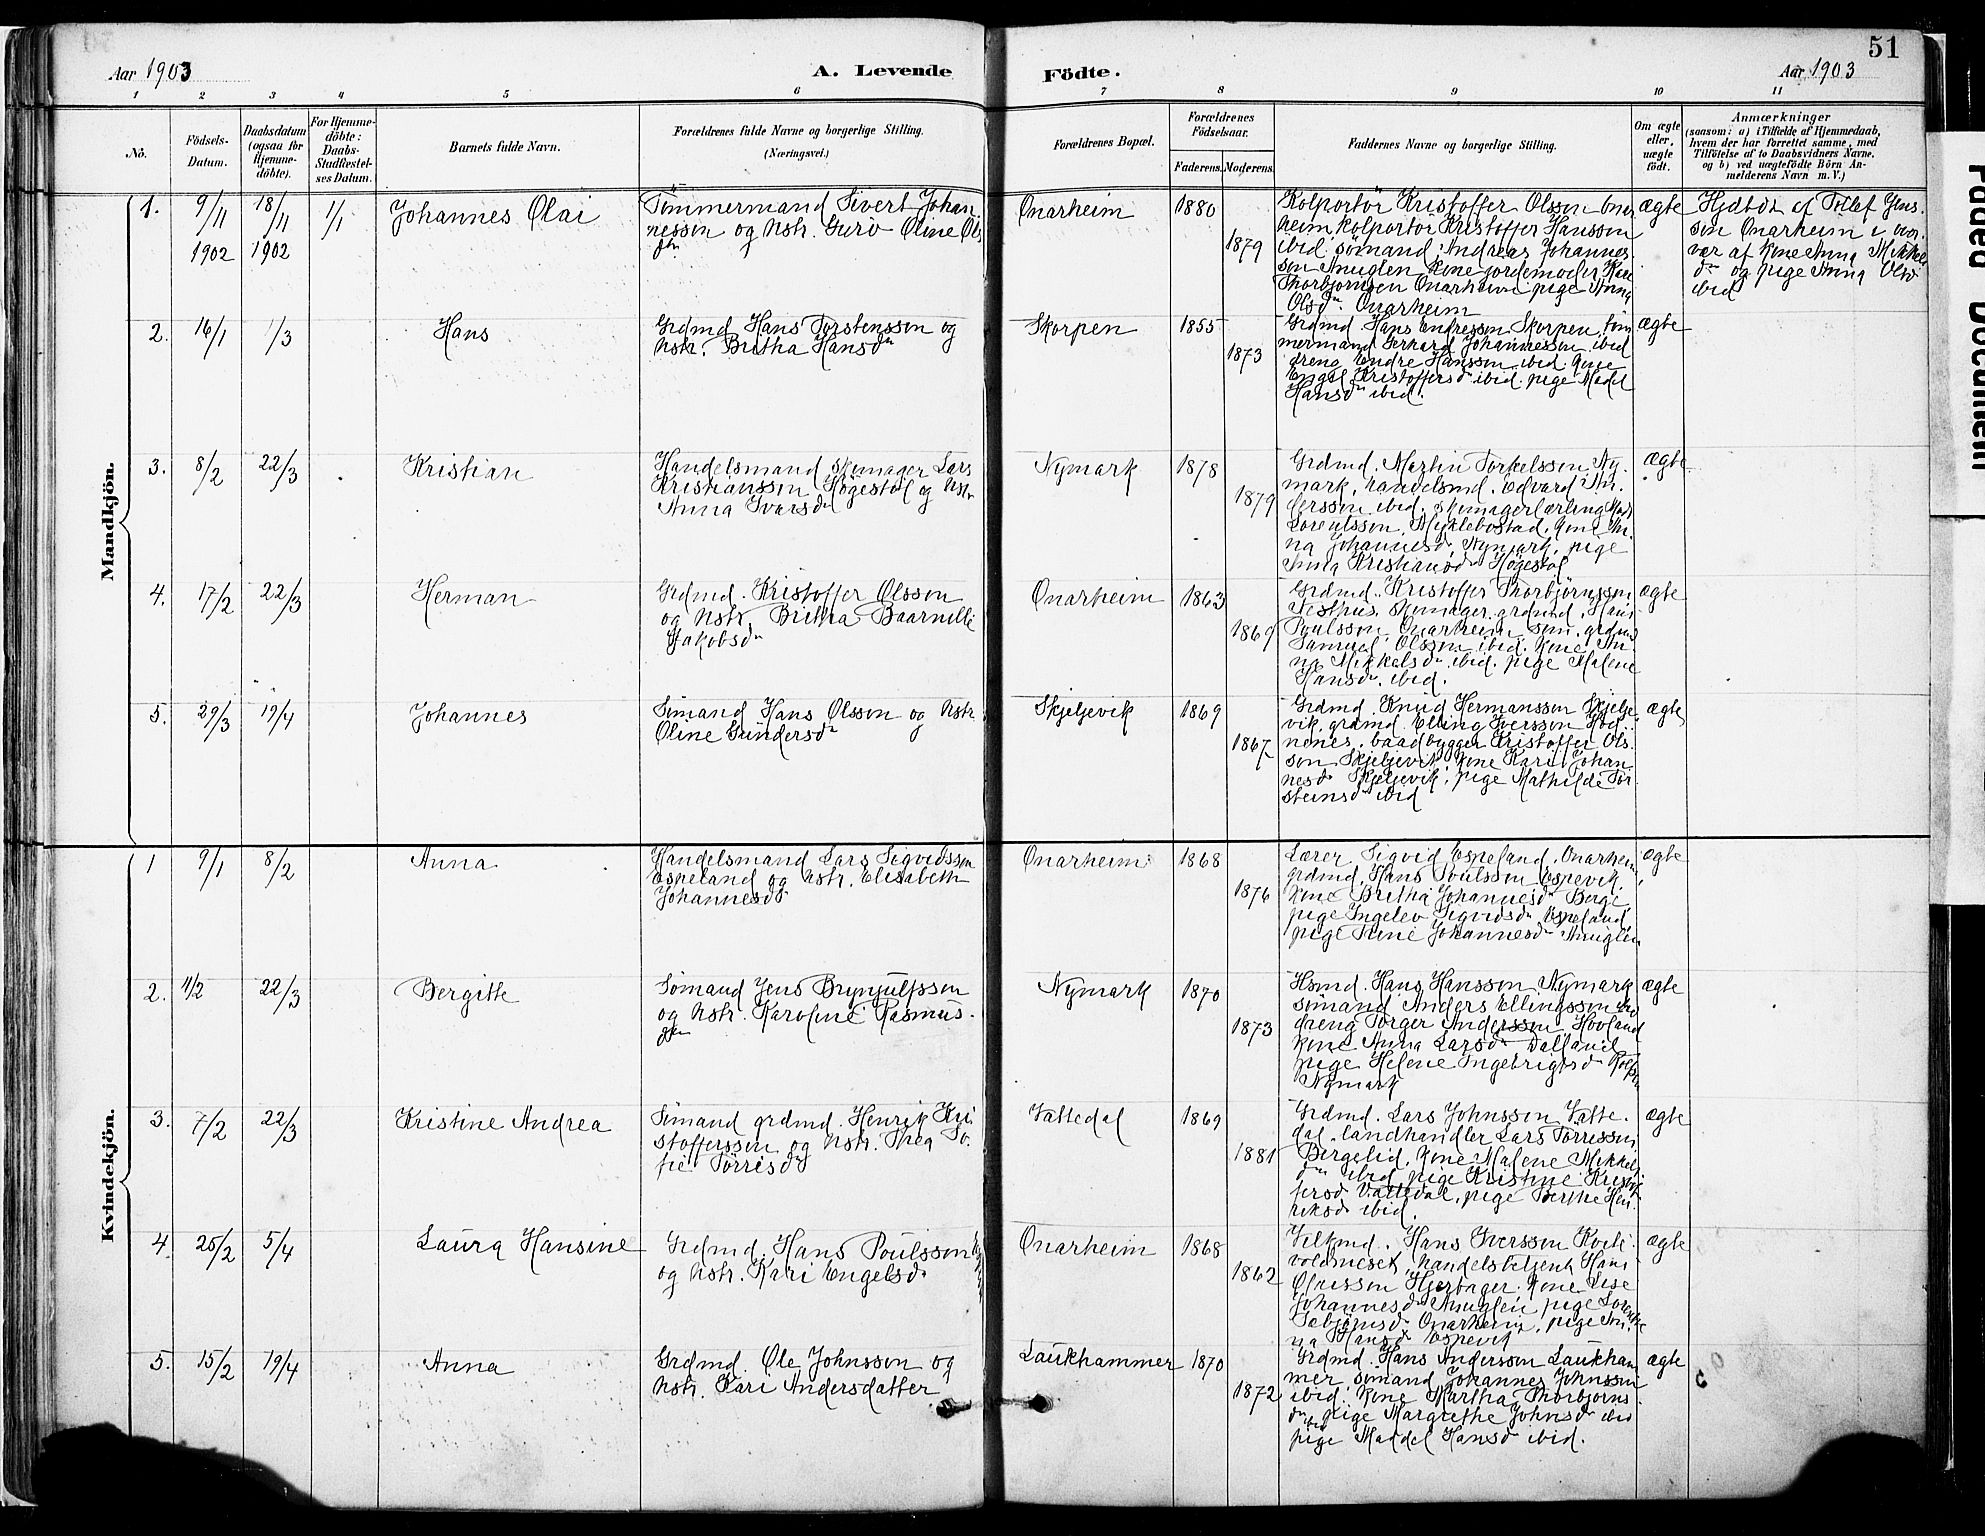 51
Aar 1903
A. Levende
Födte.
Aar 1903
1 2 3 4 5 6 7 8 9 10 11
No.
Födsels-
Datum.
Daabsdatum
(ogsaa for
Hjemme-
döbte).
For Hjemme-
döbte:
Daabs-
Stadfæstel-
ses Datum.
Barnets fulde Navn.
Forældrenes fulde Navne og borgerlige Stilling.
(Næringsvei.)
Forældrenes Bopæl.
Forældrenes
Födselsaar.
Faderens. Moderens.
Faddernes Navne og borgerlige Stilling.
Om ægte
eller
uægte
födt.
Anmærkninger
(saasom: a) i Tilfælde af Hjemmedaab,
hvem der har forrettet samme, med
Tilföielse af to Daabsvidners Navne,
og b) ved uægtefödte Börn An-
melderens Navn m. V.)
Mandkjön.
1. 9/11 1902 18/11 1902 1/1 Johannes Olai
Tömmermand Sivert Johan
nesson og hstr. Guro Oline Ols
dtr
Onarheim 1880 1879
Kolportör Kristoffer Olsson Onar
heim kolportör Kristoffer Hansson
ibid. sömand Andreas Johannes
son Anuglen kone jordemoder Kari
Onarheim pige Anna
Olsdr Onarheim
ægte
Hjdöbt af Tollef Jens
son Onarheim i nær
vær af kone Anna Mikkels
dr og pige Anna Olsd
ibid
2. 16/1 1/3 Hans
Grdmd Hans Torstensson og
hstr. Britha Hansdr
Skorpen 1855 1873
Grdmd. Hans Endresson Skorpen, töm
mermand Gerhard Johannesson ibid
dreng Endre Hansson ibid. kone
Engel Kristoffersd ibid. pige Madel
Hansdr ibid.
ægte
3. 8/2 22/3 Kristian
Handelsmand skomager Lars
Kristiansson Högestöl og hstr
Anna Ivarsdr
Nymark 1878 1879
Grdmd. Martin Torkelsson Ny
mark, handelsmd. Edvard An
dersson ibid. skomagerlærling
Lorentsson Myklebostad, kone An
na Johannesd. Nymark, pige
Anna Kristiansdr Högestöl
ægte
4. 17/2 22/3 Herman
Grdmd. Kristoffer Olsson
og hstr. Britha Baarnille
Jakobsdr
Onarheim 1863 1869
Grdmd. Kristoffer Thorbjörnsson
skomager grdmd, Hans
Poulsson Onarheim söm. grdmd
Samuel Olsson ibid. kone An
na Mikkelsdr ibid. pige Malene
Hansdr ibid.
ægte
5. 29/3 19/4 Johannes
Sömand Hans Olsson og hstr
Oline Gundersdr
Skjeljevik 1869 1867
Grdmd. Knud Hermansson Skjelje
vik, grdmd. Elling Iversson Hod
nenes, baadbygger Kristoffer Ols
son Skjeljevik, kone Kari Johan
nesd Skjeljevik, pige Mathilde Tor
steinsd ibid
ægte
Kvindekjön.
1 9/1 8/2 Anna
Handelsmand Lars Sigvidsson
Espeland og hstr. Elisabeth
Johannesdr
Onarheim 1868 1876
Lærer Sigvid Espeland, Onarheim
grdmd. Hans Poulsson Espevik.
kone Britha Johannesdr Berge
pige Ingelev Sigvidsdr Espeland
pige Johannesdr Anuglen
ægte
2. 11/2 22/3 Bergitte
Sömand Jens Brynjulfsson
og hstr. Karoline Rasmus-
dtr
Nymark 1870 1873
Hsmd. Hans Hansson Nymark
sömand Anders Ellingsson ibid
dreng Torger Andersson Hovland
kone Anna Larsdr Dalland
pige Helene Ingebrigtsdr
Nymark
ægte
3. 7/2 22/3 Kristine Andrea
Sömand grdmd. Henrik Kri
stoffersson og hstr. Thea So
fie Törrisdr
Vattedal 1869 1881
Grdmd. Lars Johnsson Vatte
dal, landhandler Lars Törrisson
Bergelid, kone Malene Mikkels
dr ibid pige Kristine Kristof
fersd Vattedal, pige Berthe Hen
riksdr ibid.
ægte
4. 25/2 5/4 Laura Hansine
Grdmd. Hans Poulsson
og hstr. Kari Engelsdr
Onarheim 1868 1862
Hans Iversson Kvit
voldneset, handelsbetjent Hans
Olaisson kone Lise
Johannesdr Anuglen pige
Onarheim, pige An
na Hansdr Espevik
ægte
5. 15/2 19/4 Anna
Grdmd. Ole Johnsson og
hstr. Kari Andersdatter
Laukhammer 1870 1872
Grdmd. Hans Andersson Laukham
mer, sömand Johannes Johnsson
ibid. kone Martha Thorbjörns
dr ibid pige Margrethe Johnsdr ibid
pige Maddel Hansd ibid.
ægte
Faded Document